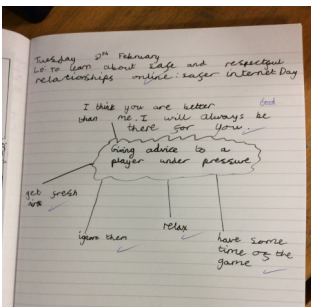 Tuesday 9th February
LO: To learn about safe and respectful
relationships online: safer internet Day
I think you are better
than me. I will always be
there for you.
Giving advice to a
player under pressure
get fresh
air
ignore them
relax
have some
time of the
game